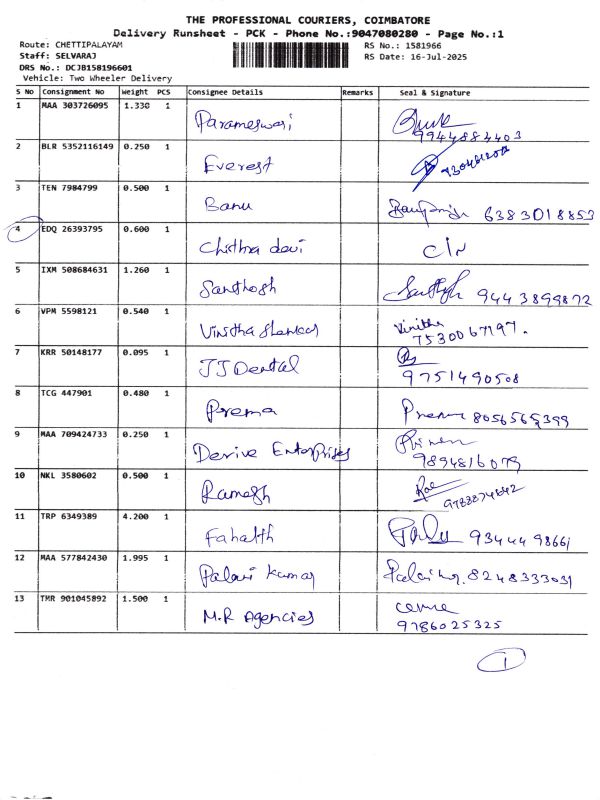 THE PROFESSIONAL COURIERS, COIMBATORE
Delivery Runsheet - PCK - Phone No.:9047080280 - Page No.:1
Route: CHETTIPALAYAM RS No.: 1581966
Staff: SELVARAJ RS Date: 16-Jul-2025
DRS No.: DCJB158196601
Vehicle: Two Wheeler Delivery
S No Consignment No Weight PCS Consignee Details Remarks Seal & Signature
1 MAA 303726095 1.330 1 Parameswari
9944884403
2 BLR 5352116149 0.250 1 Everest
3 TEN 7984799 0.500 1 Banu 6383018853
4 EDQ 26393795 0.600 1 Chithra devi c/r
5 IXM 508684631 1.260 1 Santhosh Santhosh 9443899872
6 VPM 5598121 0.540 1 Vinitha Shankar Vinitha
7530067197.
7 KRR 50148177 0.095 1 JJ Dental
9751490508
8 TCG 447901 0.480 1 Prema Prema 8056565399
9 MAA 709424733 0.250 1 Derive Enterprises
9894816079
10 NKL 3580602 0.500 1 Ramesh
9788874642
11 TRP 6349389 4.200 1 93444 98661
12 MAA 577842430 1.995 1 Palani Kumar 8248333031
13 TMR 901045892 1.500 1 M.R Agencies
9786025325
1